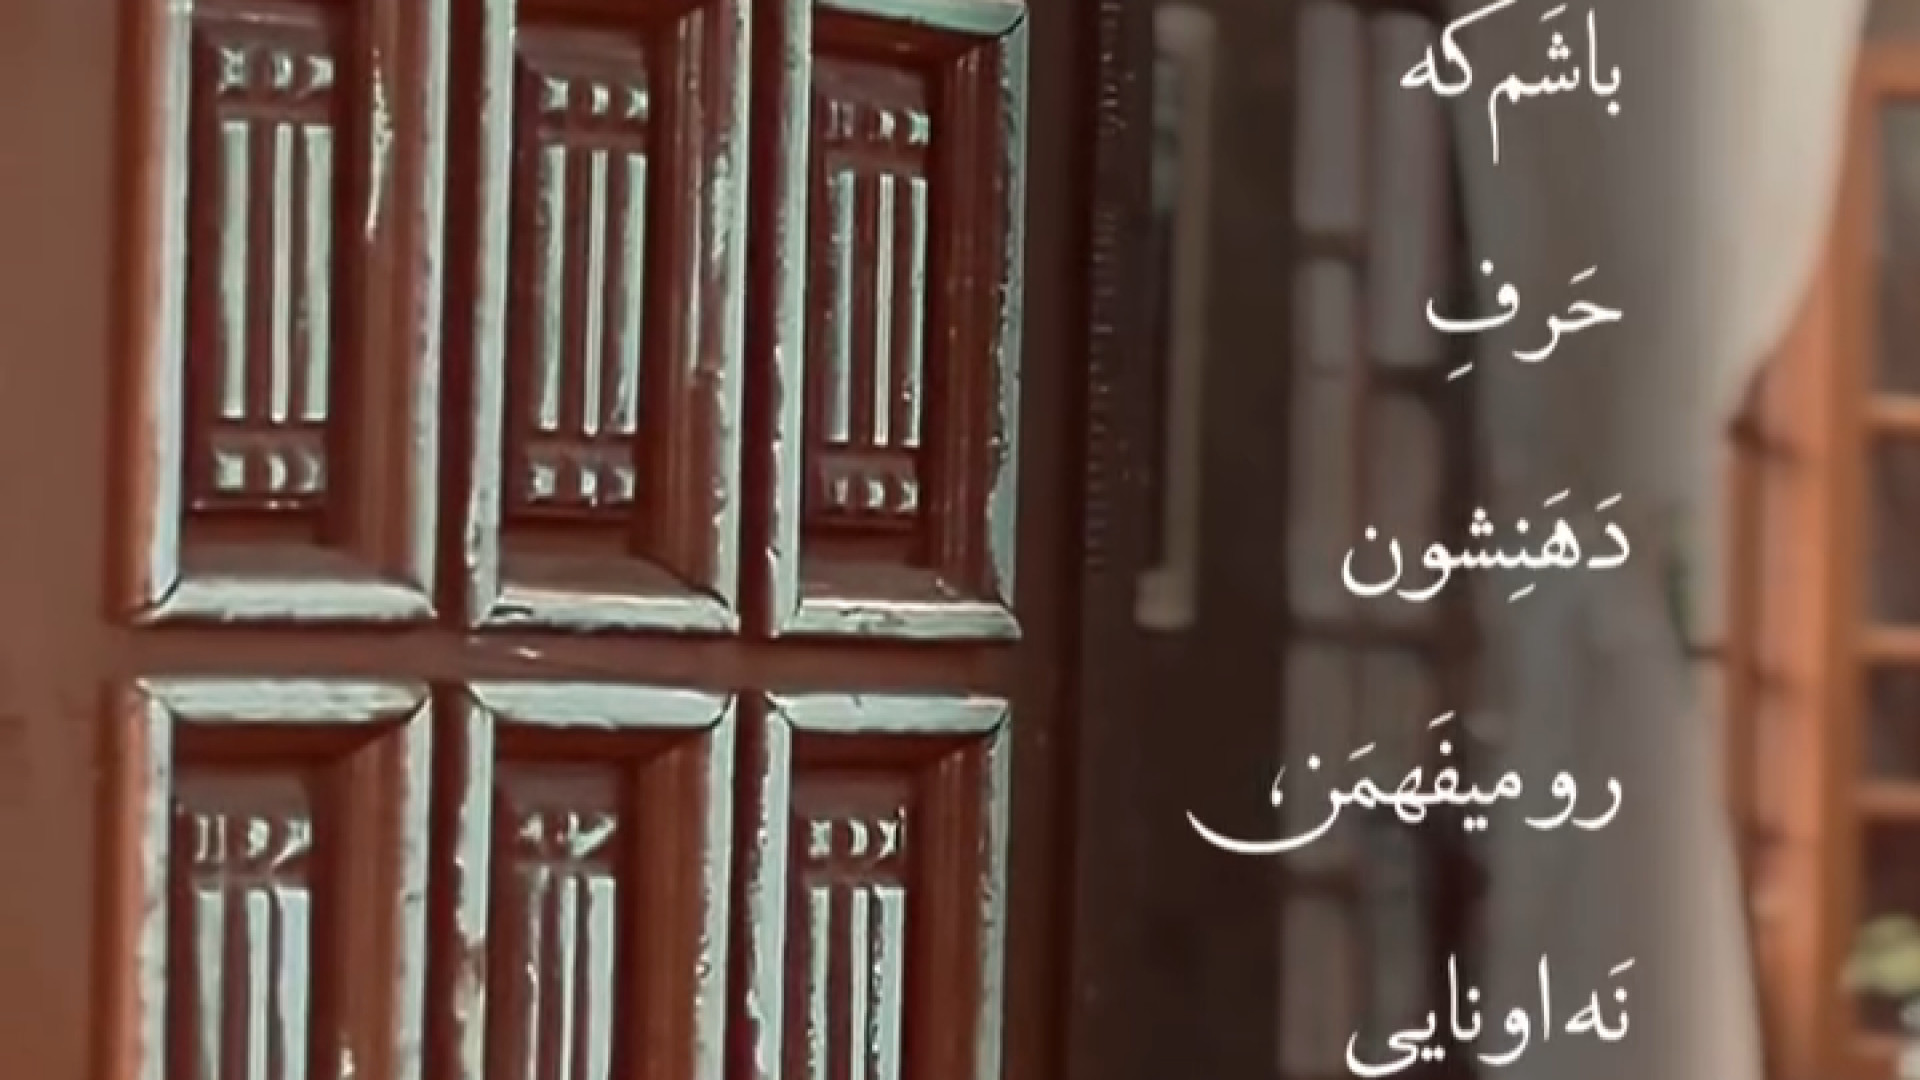 باشَم که
حَرفِ
دَهَنِشون
رو میفَهمَن،
نَه اونایی